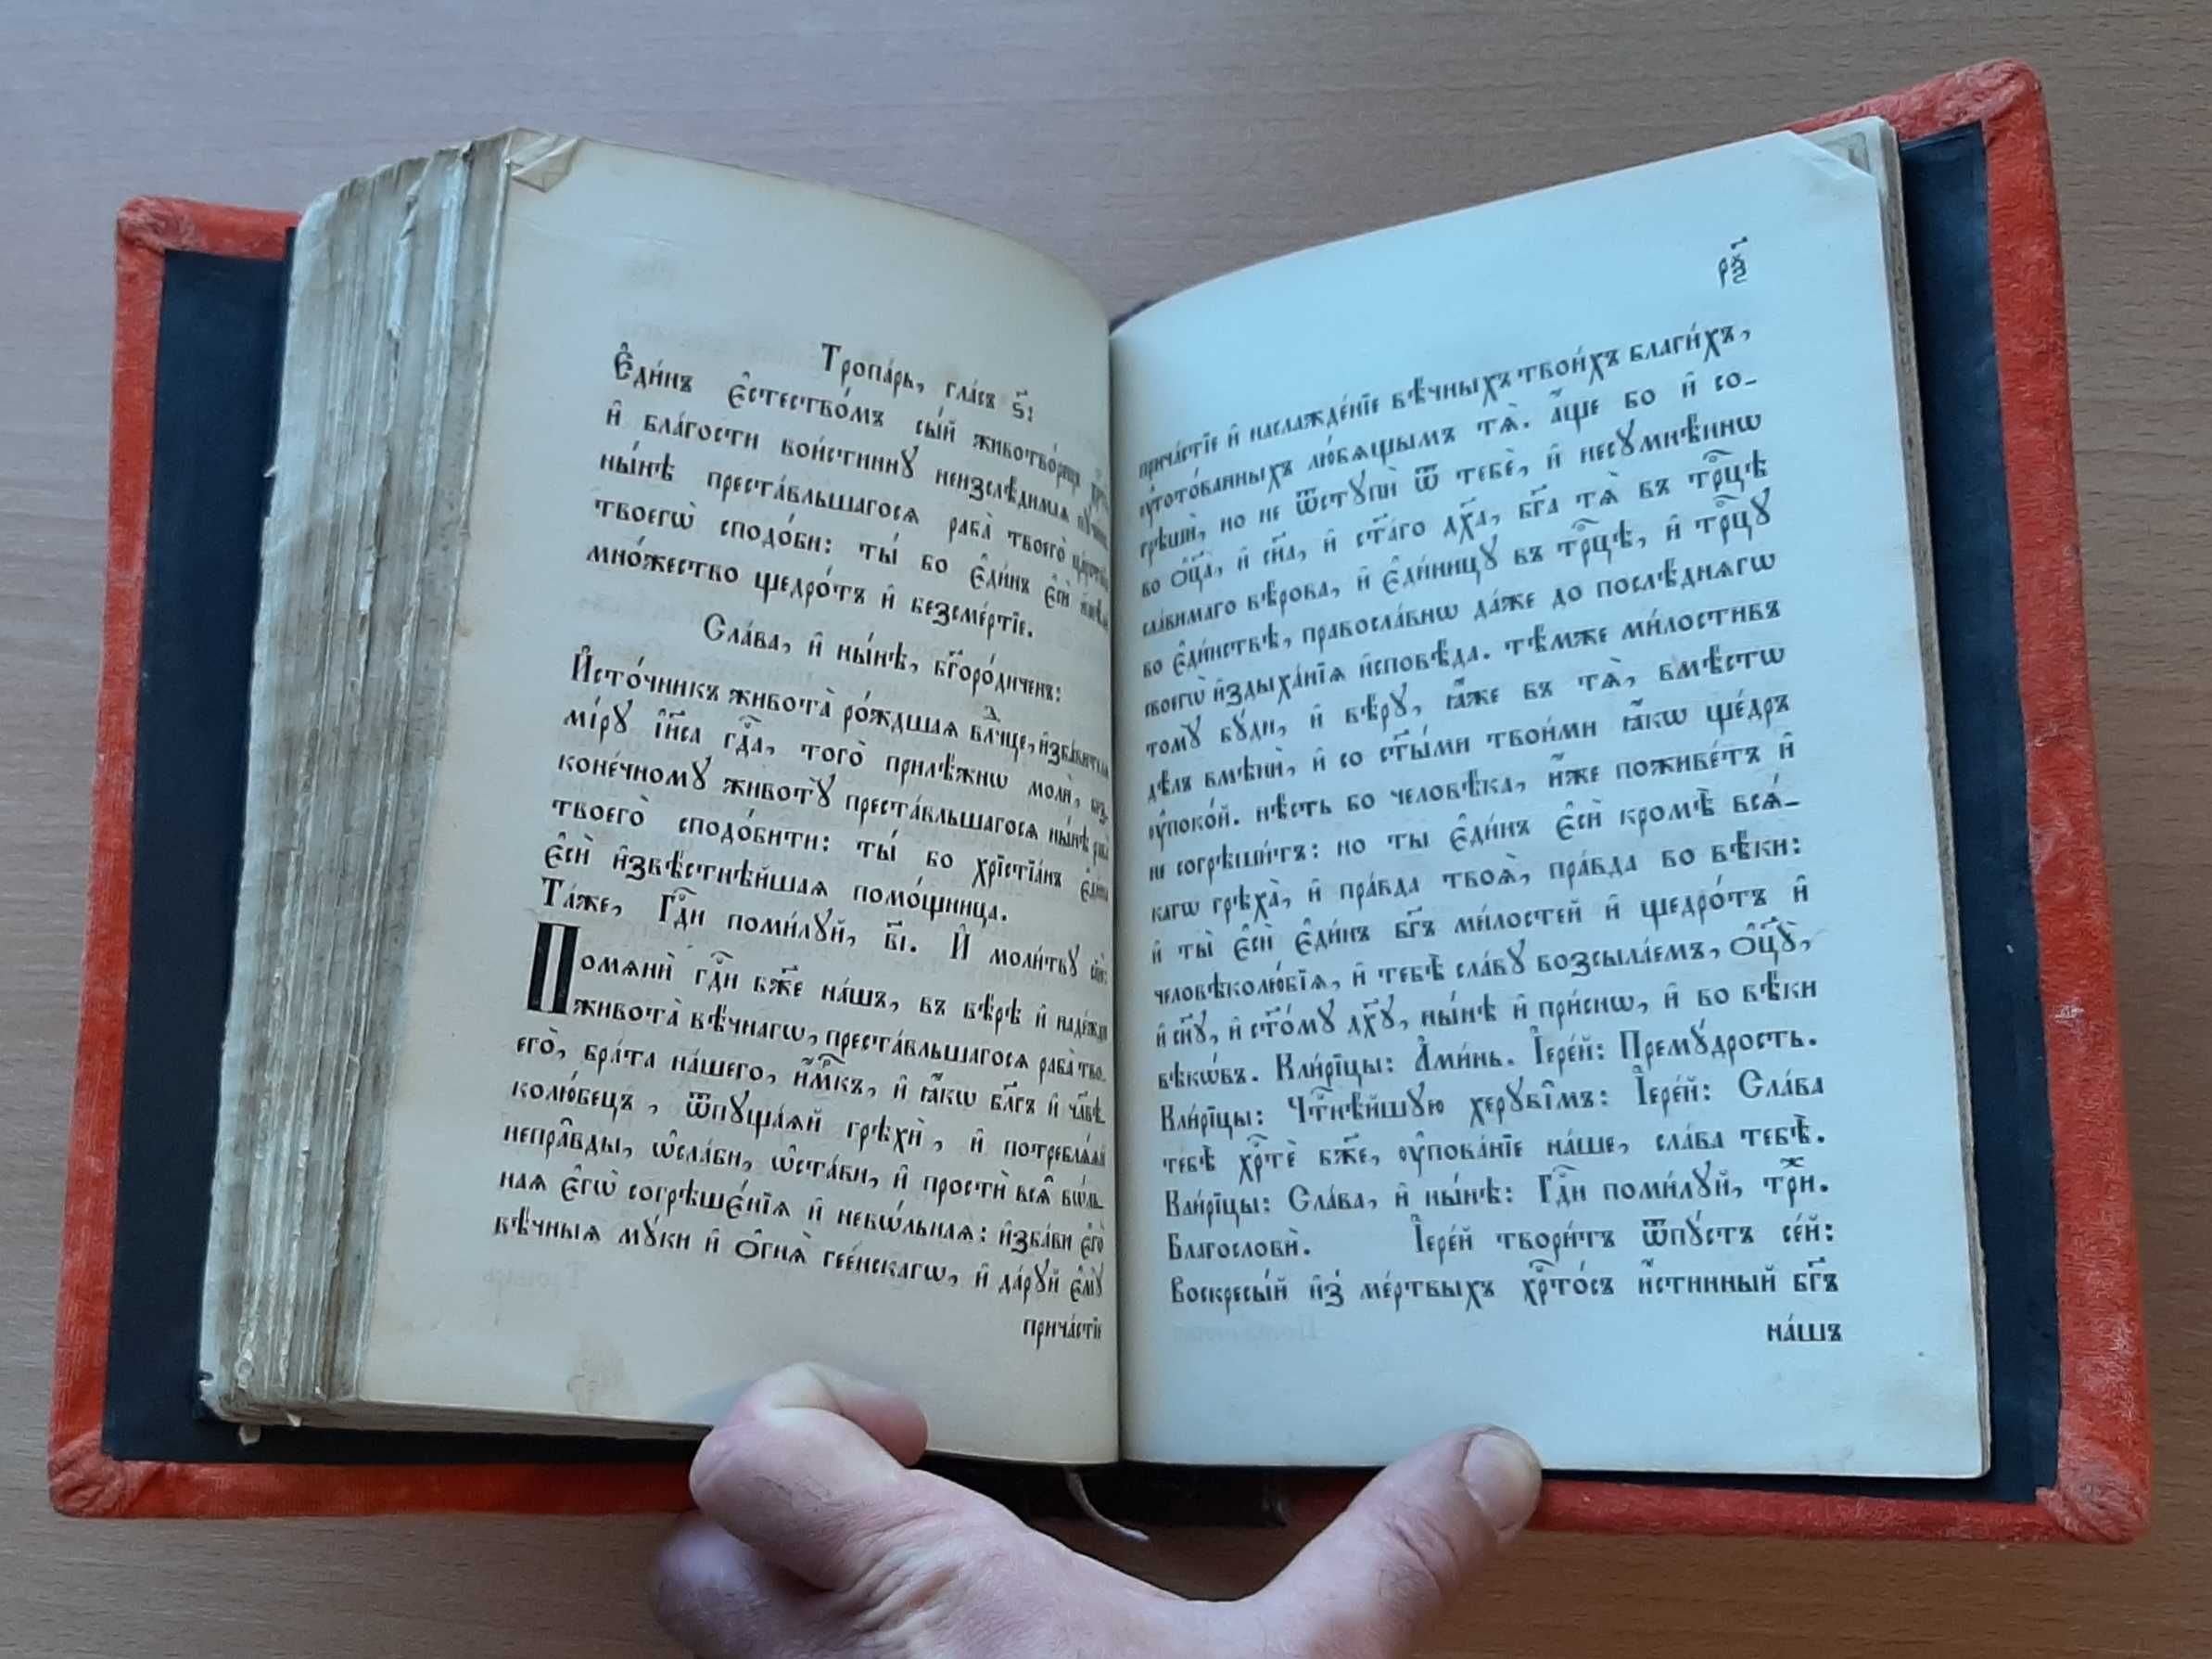 Тропа́рь, гла́съ ѕ҃:
Є҆ди́нъ є҆стество́мъ сы́й животво́рящъ
и҆ бла́гости вои́стиннꙋ неизслѣ́димаѧ
ны́нѣ преста́вльшагосѧ раба̀ твоего̀
твоегѡ̀ сподо́би: ты́ бо є҆ди́нъ є҆сѝ
мно́жество щедро́тъ и҆ безсме́ртїе.
Сла́ва, и҆ ны́нѣ, бг҃оро́диченъ:
И҆сто́чникъ живота̀ ро́ждшаѧ влⷣчце, и҆зба́вителѧ
мі́рꙋ і҆и҃са гдⷭ҇а, того̀ прилѣ́жнѡ молѝ, без-
коне́чномꙋ животꙋ̀ преста́вльшагосѧ ны́нѣ раба̀
твоего̀ сподо́бити: ты́ бо хрїстїа́нъ є҆ди́на
є҆сѝ и҆звѣ́стнѣйшаѧ помо́щница.
Та́же, Гдⷭ҇и поми́лꙋй, в҃і. И҆ моли́твꙋ сїю̀:
Помѧнѝ гдⷭ҇и бж҃е на́шъ, въ вѣ́рѣ и҆ наде́жди
живота̀ вѣ́чнагѡ, преста́вльшагосѧ раба̀ тво-
его̀, бра́та на́шего, и҆́мⷬ҇къ, и҆ ꙗ҆́кѡ бл҃гъ и҆ чл҃вѣ-
колю́бецъ, ѿпꙋща́ѧй грѣхѝ, и҆ потреблѧ́ѧй
непра̑вды, ѡ҆сла́би, ѡ҆ста́ви, и҆ простѝ всѧ̑ вѡ́ль-
наѧ є҆гѡ̀ согрѣшє́нїѧ и҆ невѡ́льнаѧ: и҆зба́ви є҆го̀
вѣ́чныѧ мꙋ́ки и҆ ѻ҆гнѧ̀ гее́нскагѡ, и҆ да́рꙋй є҆мꙋ̀
прича́стїе
рѯ҃з
прича́стїе и҆ наслажде́нїе вѣ́чныхъ твои́хъ благи́хъ,
ᲂу҆гото́ванныхъ лю́бѧщымъ тѧ̀. а҆́ще бо и҆ со-
грѣшѝ, но не ѿстꙋпѝ ѿ тебє̀, и҆ несꙋмнѣ́ннѡ
во ѻ҆ц҃а̀, и҆ сн҃а, и҆ ст҃а́го дх҃а, бг҃а тѧ̀ въ трⷪ҇цѣ
сла́вимаго вѣ́рова, и҆ є҆ди́ницꙋ въ трⷪ҇цѣ, и҆ трⷪ҇цꙋ
во є҆ди́нствѣ, правосла́внѡ да́же до послѣ́днѧгѡ
своегѡ̀ и҆здыха́нїѧ и҆сповѣ́да. тѣ́мже ми́лостивъ
томꙋ̀ бꙋ́ди, и҆ вѣ́рꙋ, ꙗ҆́же въ тѧ̀, вмѣ́стѡ
дѣ́лъ вмѣнѝ, и҆ со ст҃ы́ми твои́ми ꙗ҆́кѡ ще́дръ
ᲂу҆поко́й. нѣ́сть бо человѣ́ка, и҆́же поживе́тъ и҆
не согрѣши́тъ: но ты̀ є҆ди́нъ є҆сѝ кромѣ̀ всѧ́-
кагѡ грѣха̀, и҆ пра́вда твоѧ̀, пра́вда во вѣ́ки:
и҆ ты̀ є҆сѝ є҆ди́нъ бг҃ъ ми́лостей и҆ щедро́тъ и҆
человѣколю́бїѧ, и҆ тебѣ̀ сла́вꙋ возсыла́емъ, ѻ҆ц҃ꙋ̀,
и҆ сн҃ꙋ, и҆ ст҃о́мꙋ дх҃ꙋ, ны́нѣ и҆ при́снѡ, и҆ во вѣ́ки
вѣкѡ́въ. Кли́рїцы: А҆ми́нь. І҆ере́й: Премꙋ́дрость.
Кли́рїцы: Чⷭ҇тнѣ́йшꙋю херꙋві̑мъ: І҆ере́й: Сла́ва
тебѣ̀ хрⷭ҇тѐ бж҃е, ᲂу҆пова́нїе на́ше, сла́ва тебѣ̀.
Кли́рїцы: Сла́ва, и҆ ны́нѣ: Гдⷭ҇и поми́лꙋй, три́жⷣ.
Благословѝ. І҆ере́й твори́тъ ѿпꙋ́стъ се́й:
Воскресы́й и҆з̾ ме́ртвыхъ хрⷭ҇то́съ и҆́стинный бг҃ъ
на́шъ